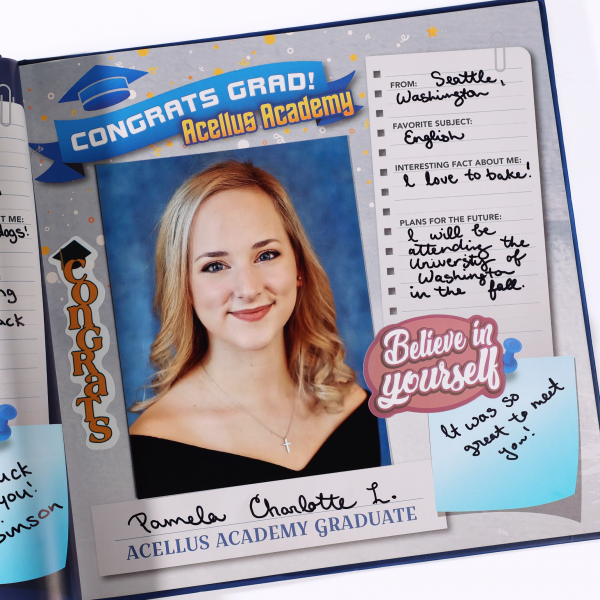 CONGRATS GRAD!
Acellus Academy
FROM: Seattle,
Washington
FAVORITE SUBJECT:
English
INTERESTING FACT ABOUT ME:
I love to bake!
PLANS FOR THE FUTURE:
I will be
attending the
University of
Washington
in the fall.
Congrats
Believe in
yourself
It was so
great to meet
you!
Pamela Charlotte L.
ACELLUS ACADEMY GRADUATE
T ME:
dogs!
ng
ack
uck
you!